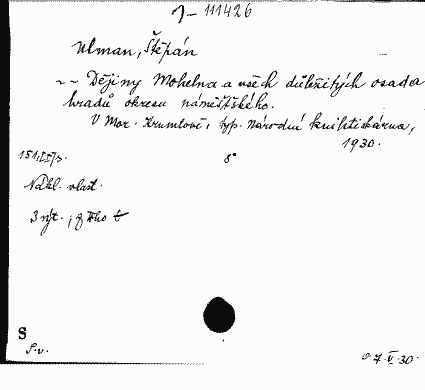 J-111426
Ulman, Štěpán
-- Dějiny Mohelna a všech důležitých osad a
hradů okresu náměšťského.
V Mor. Krumlově, typ. Národní knihtiskárna,
1930.
8°
Nákl. vlast.
S
7.V.30.